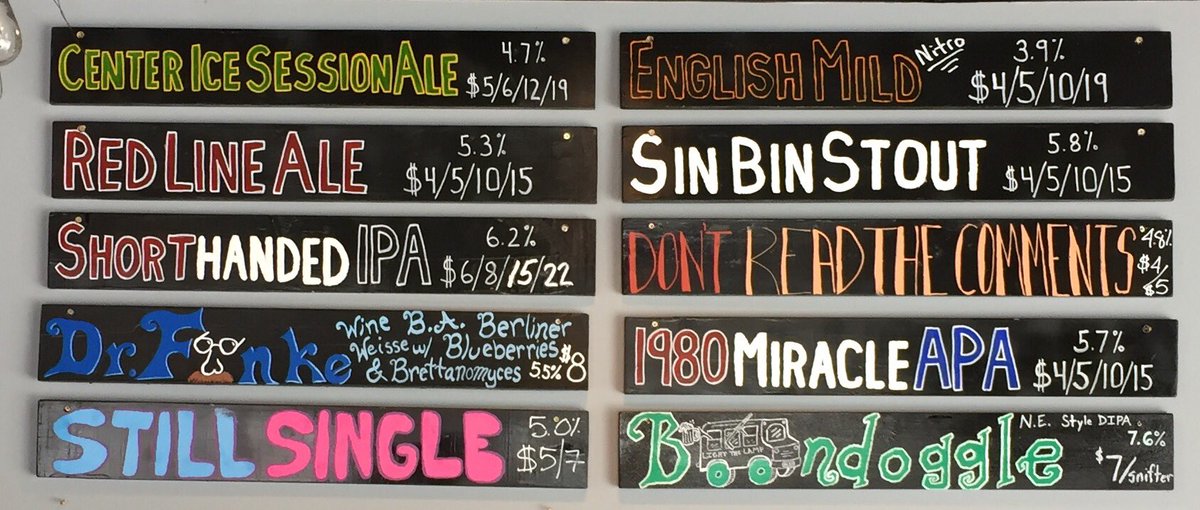 CENTER ICE SESSION ALE 4.7% $5/6/12/19
RED LINE ALE 5.3% $4/5/10/15
SHORTHANDED IPA 6.2% $6/8/15/22
Dr. Funke Wine B.A. Berliner
Weisse w/ Blueberries
& Brettanomyces 5.5% $8
STILL SINGLE 5.0% $5/7
ENGLISH MILD Nitro 3.9% $4/5/10/19
SIN BIN STOUT 5.8% $4/5/10/15
DON'T READ THE COMMENTS 4.8% $4/$5
1980 MIRACLE APA 5.7% $4/5/10/15
Boondoggle N.E. Style DIPA 7.6% $7/snifter
LIGHT THE LAMP